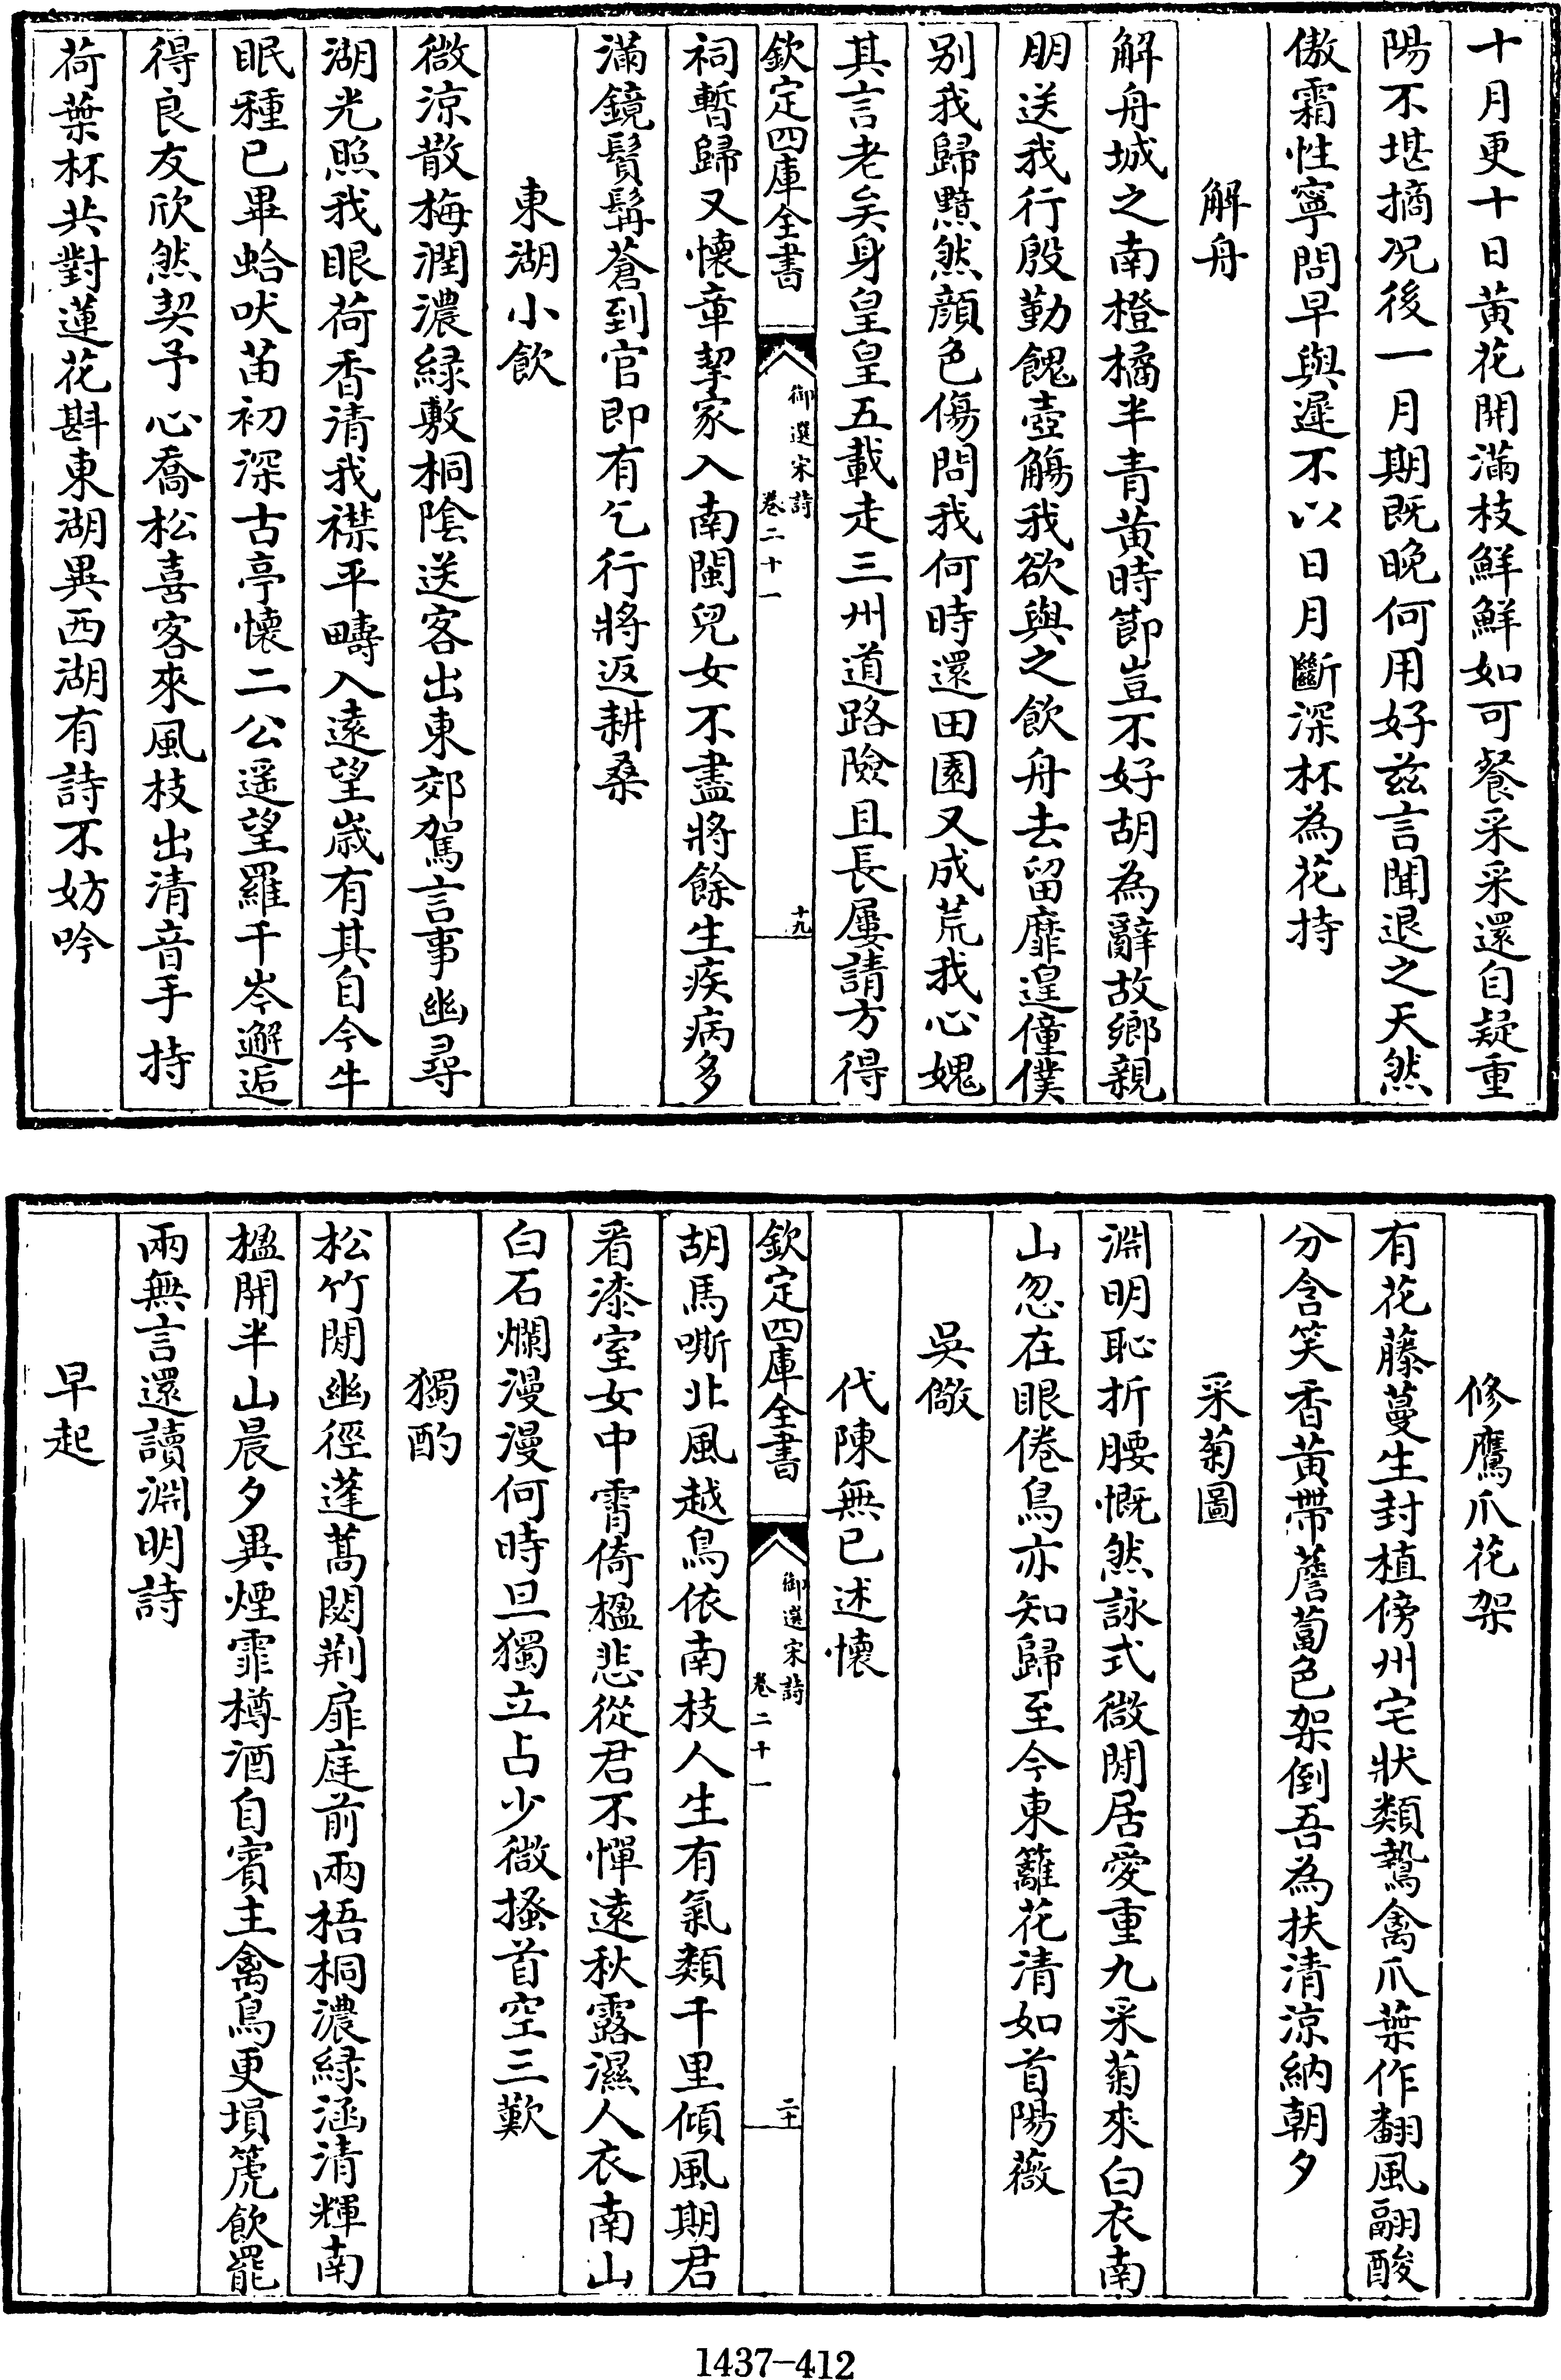 十月更十日黄花開滿枝鮮鮮如可餐采采還自疑重
陽不堪摘况後一月期既晚何用好兹言聞退之天然
傲霜性寧問早與遲不以日月斷深杯為花持
解舟
解舟城之南橙橘半青黄時節豈不好胡為辭故鄉親
朋送我行殷勤餽壺觴我欲與之飲舟去留靡遑僮僕
别我歸黯然顔色傷問我何時還田園又成荒我心媿
其言老矣身皇皇五載走三州道路險且長屢請方得
欽定四庫全書
御選宋詩
卷二十一
十九
祠暫歸又懷章挈家入南閩兒女不盡將餘生疾病多
滿鏡鬢髯蒼到官即有乞行將返耕桑
東湖小飲
微涼散梅潤濃緑敷桐陰送客出東郊駕言事幽尋
湖光照我眼荷香清我襟平疇入遠望歲有其自今牛
眠種已畢蛤吠苗初深古亭懷二公遥望羅千岑邂逅
得良友欣然契予心喬松喜客來風枝出清音手持
荷葉杯共對蓮花斟東湖異西湖有詩不妨吟
修鷹爪花架
有花藤蔓生封植傍州宅狀類鷙禽爪葉作翻風翮酸
分含笑香黄帶薝蔔色架倒吾為扶清涼納朝夕
采菊圖
淵明恥折腰慨然詠式微閒居愛重九采菊來白衣南
山忽在眼倦鳥亦知歸至今東籬花清如首陽薇
吳儆
代陳無已述懷
欽定四庫全書
御選宋詩
卷二十一
二十
胡馬嘶北風越鳥依南枝人生有氣類千里傾風期君
看漆室女中霄倚楹悲從君不憚遠秋露濕人衣南山
白石爛漫漫何時旦獨立占少微搔首空三歎
獨酌
松竹閒幽徑蓬蒿閟荆扉庭前兩梧桐濃緑涵清輝南
楹開半山晨夕異煙霏樽酒自賓主禽鳥更塤箎飲罷
兩無言還讀淵明詩
早起
1437-412